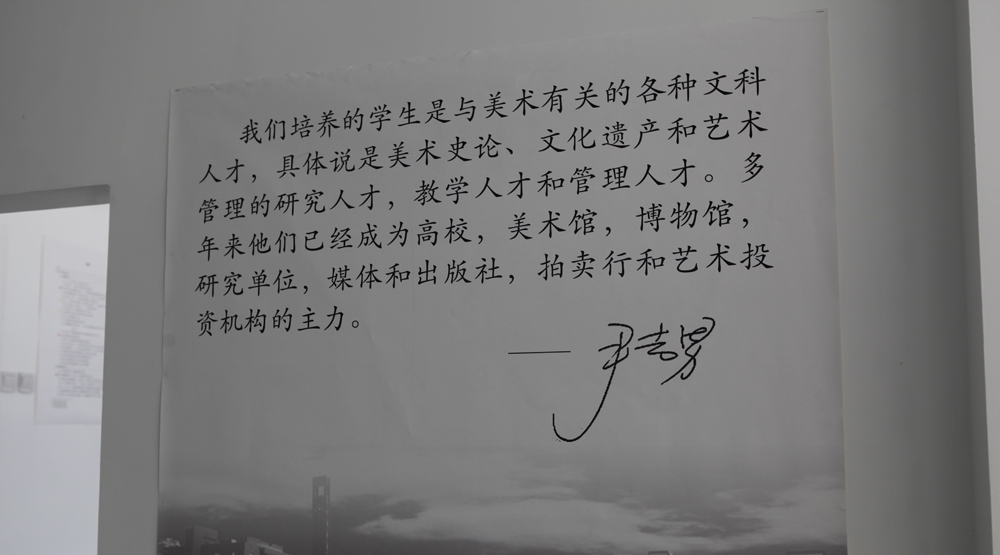 我们培养的学生是与美术有关的各种文科
人才，具体说是美术史论、文化遗产和艺术
管理的研究人才，教学人才和管理人才。多
年来他们已经成为高校，美术馆，博物馆，
研究单位，媒体和出版社，拍卖行和艺术投
资机构的主力。
——尹吉男